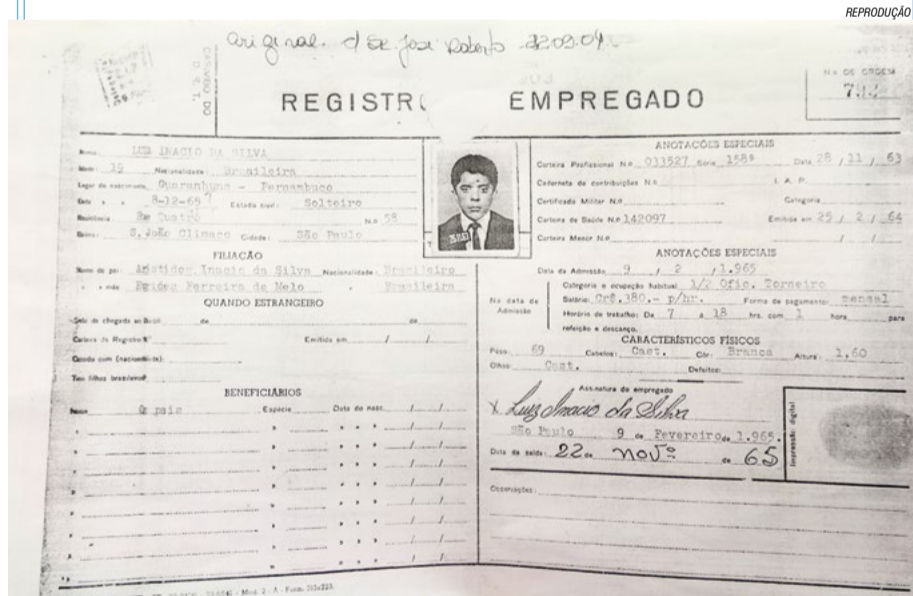 REPRODUÇÃO
original. d Sr. José Roberto 22.09.04
Nº DE ORDEM
REGISTR EMPREGADO
LUIZ INACIO DA SILVA
19 Nacionalidade: Brasileira
Lugar de nascimento, Guaranhuns - Pernambuco
8-12-65 Estado civil: Solteiro
Residência: Rua Quatro N.o 58
Bairro: S. João Climaco Cidade: São Paulo
FILIAÇÃO
Nome do pai: Aristides Inacio da Silva Nacionalidade: Brasileiro
mãe Eurides Ferreira de Melo Brasileira
QUANDO ESTRANGEIRO
Data de chegada ao Brasil de de
Carteira de Registro N.o Emitida em / /
Casado com (nacionalidade):
Tem filhos brasileiros
BENEFICIÁRIOS
Nome Os pais Espécie Data do nasc. / /
ANOTAÇÕES ESPECIAIS
Carteira Profissional N.o 033527 Série 158ª Data 28 / 11 / 63
Caderneta de contribuições N.o I. A. P.
Certificado Militar N.o Categoria
Carteira de Saúde N.o 142097 Emitida em 25 / 2 / 64
Carteira Menor N.o / /
ANOTAÇÕES ESPECIAIS
Data da Admissão 9 / 2 / 1.965
Na data da Admissão
Categoria e ocupação habitual 1/2 Ofic. Torneiro
Salário: Cr$.380.- p/hr. Forma de pagamento: mensal
Horário de trabalho: De 7 a 18 hrs. com 1 hora para
refeição e descanço.
CARACTERÍSTICOS FÍSICOS
Peso: 69 Cabelos: Cast. Côr: Branca Altura: 1,60
Olhos: Cast. Defeitos:
Assinatura do empregado
X Luiz Inacio da Silva
São Paulo 9 de Fevereiro de 1.965.
Data da saída: 22 de novº de 65
Impressão digital
Observações: